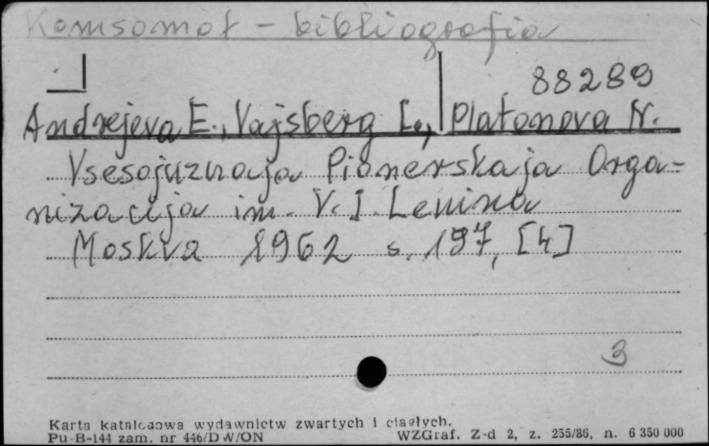 Komsomoł - bibliografia
88289
Andrejeva E., Vajsberg L., Platonova N.
Vsesojuznaja Pionerskaja Orga-
nizacija im. V. I. Lenina
Moskva 1962 s. 197, [4]
3
Karta katalogowa wydawnictw zwartych i ciągłych.
Pu-B-144 zam. nr 446/DW/ON
WZGraf. Z-d 2, z. 255/86, n. 6 350 000